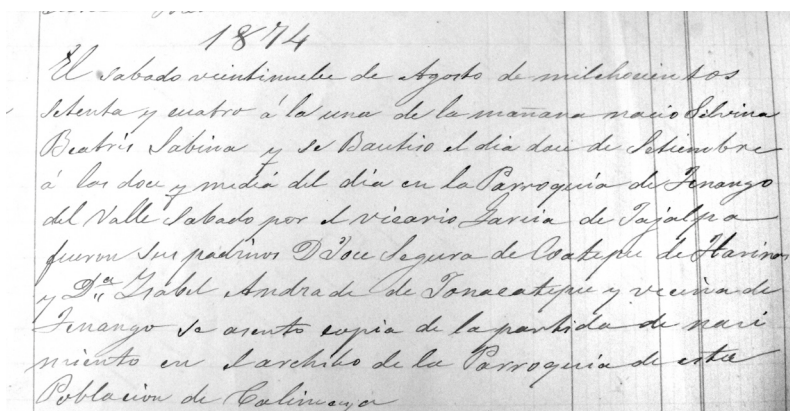 1874
El sabado veintinuebe de Agosto de milchocientos
setenta y cuatro á la una de la mañana nacio Silvina
Beatris Sabina y se Bautiso el dia doce de Setiembre
á las doce y media del dia en la Parroquia de Tenango
del Valle Sabado por el vicario Garcia de Tajalpa
fueron sus padrinos Dn Jose Segura de Coatepe de Harinas
y Da Ysabel Andrade de Tonacatepe y vecina de
Tenango se asento copia de la partida de naci
miento en el archibo de la Parroquia de esta
Poblacion de Calimaya